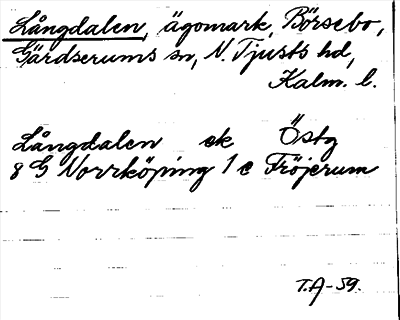 Långdalen, ägomark, Börsebo,
Gärdserums sn, N. Tjusts hd,
Kalm. l.
Långdalen ek Östg
8 G Norrköping 1 c Fröjerum
T.A-59.